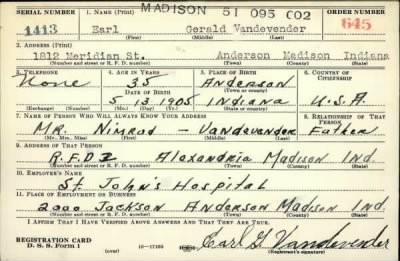 MADISON 51 095 C02
SERIAL NUMBER 1. NAME (Print) ORDER NUMBER
1413 Earl Gerald Vandevender 645
(First) (Middle) (Last)
2. ADDRESS (Print)
1812 Meridian St. Anderson Madison Indiana
(Number and street or R. F. D. number) (Town) (County) (State)
3. TELEPHONE 4. AGE IN YEARS 5. PLACE OF BIRTH 6. COUNTRY OF CITIZENSHIP
None 35 Anderson
(Town or county)
DATE OF BIRTH
5 13 1905 Indiana U.S.A.
(Exchange) (Number) (Mo.) (Day) (Yr.) (State or country)
7. NAME OF PERSON WHO WILL ALWAYS KNOW YOUR ADDRESS 8. RELATIONSHIP OF THAT PERSON
Mr. Nimrod - Vandevender Father
(Mr., Mrs., Miss) (First) (Middle) (Last)
9. ADDRESS OF THAT PERSON
R.F.D. 2 Alexandria Madison Ind.
(Number and street or R. F. D. number) (Town) (County) (State)
10. EMPLOYER'S NAME
St. John's Hospital
11. PLACE OF EMPLOYMENT OR BUSINESS
2000 Jackson Anderson Madison Ind
(Number and street or R. F. D. number) (Town) (County) (State)
I AFFIRM THAT I HAVE VERIFIED ABOVE ANSWERS AND THAT THEY ARE TRUE.
REGISTRATION CARD
D. S. S. Form 1 16-17105 Earl G. Vandevender
(Registrant's signature)